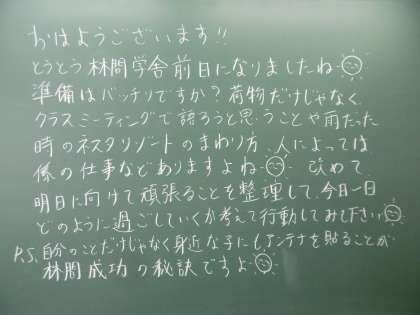 おはようございます!!
とうとう林間学舎前日になりましたね
準備はバッチリですか?荷物だけじゃなく
クラスミーティングで語ろうと思うことや雨だった
時のネスタリゾートのまわり方、人によっては
係の仕事などありますよね 改めて
明日に向けて頑張ることを整理して、今日一日
どのように過ごしていくか考えて行動してみて下さい
P.S.自分のことだけじゃなく身近な子にもアンテナを貼ることが
林間成功の秘訣ですよ